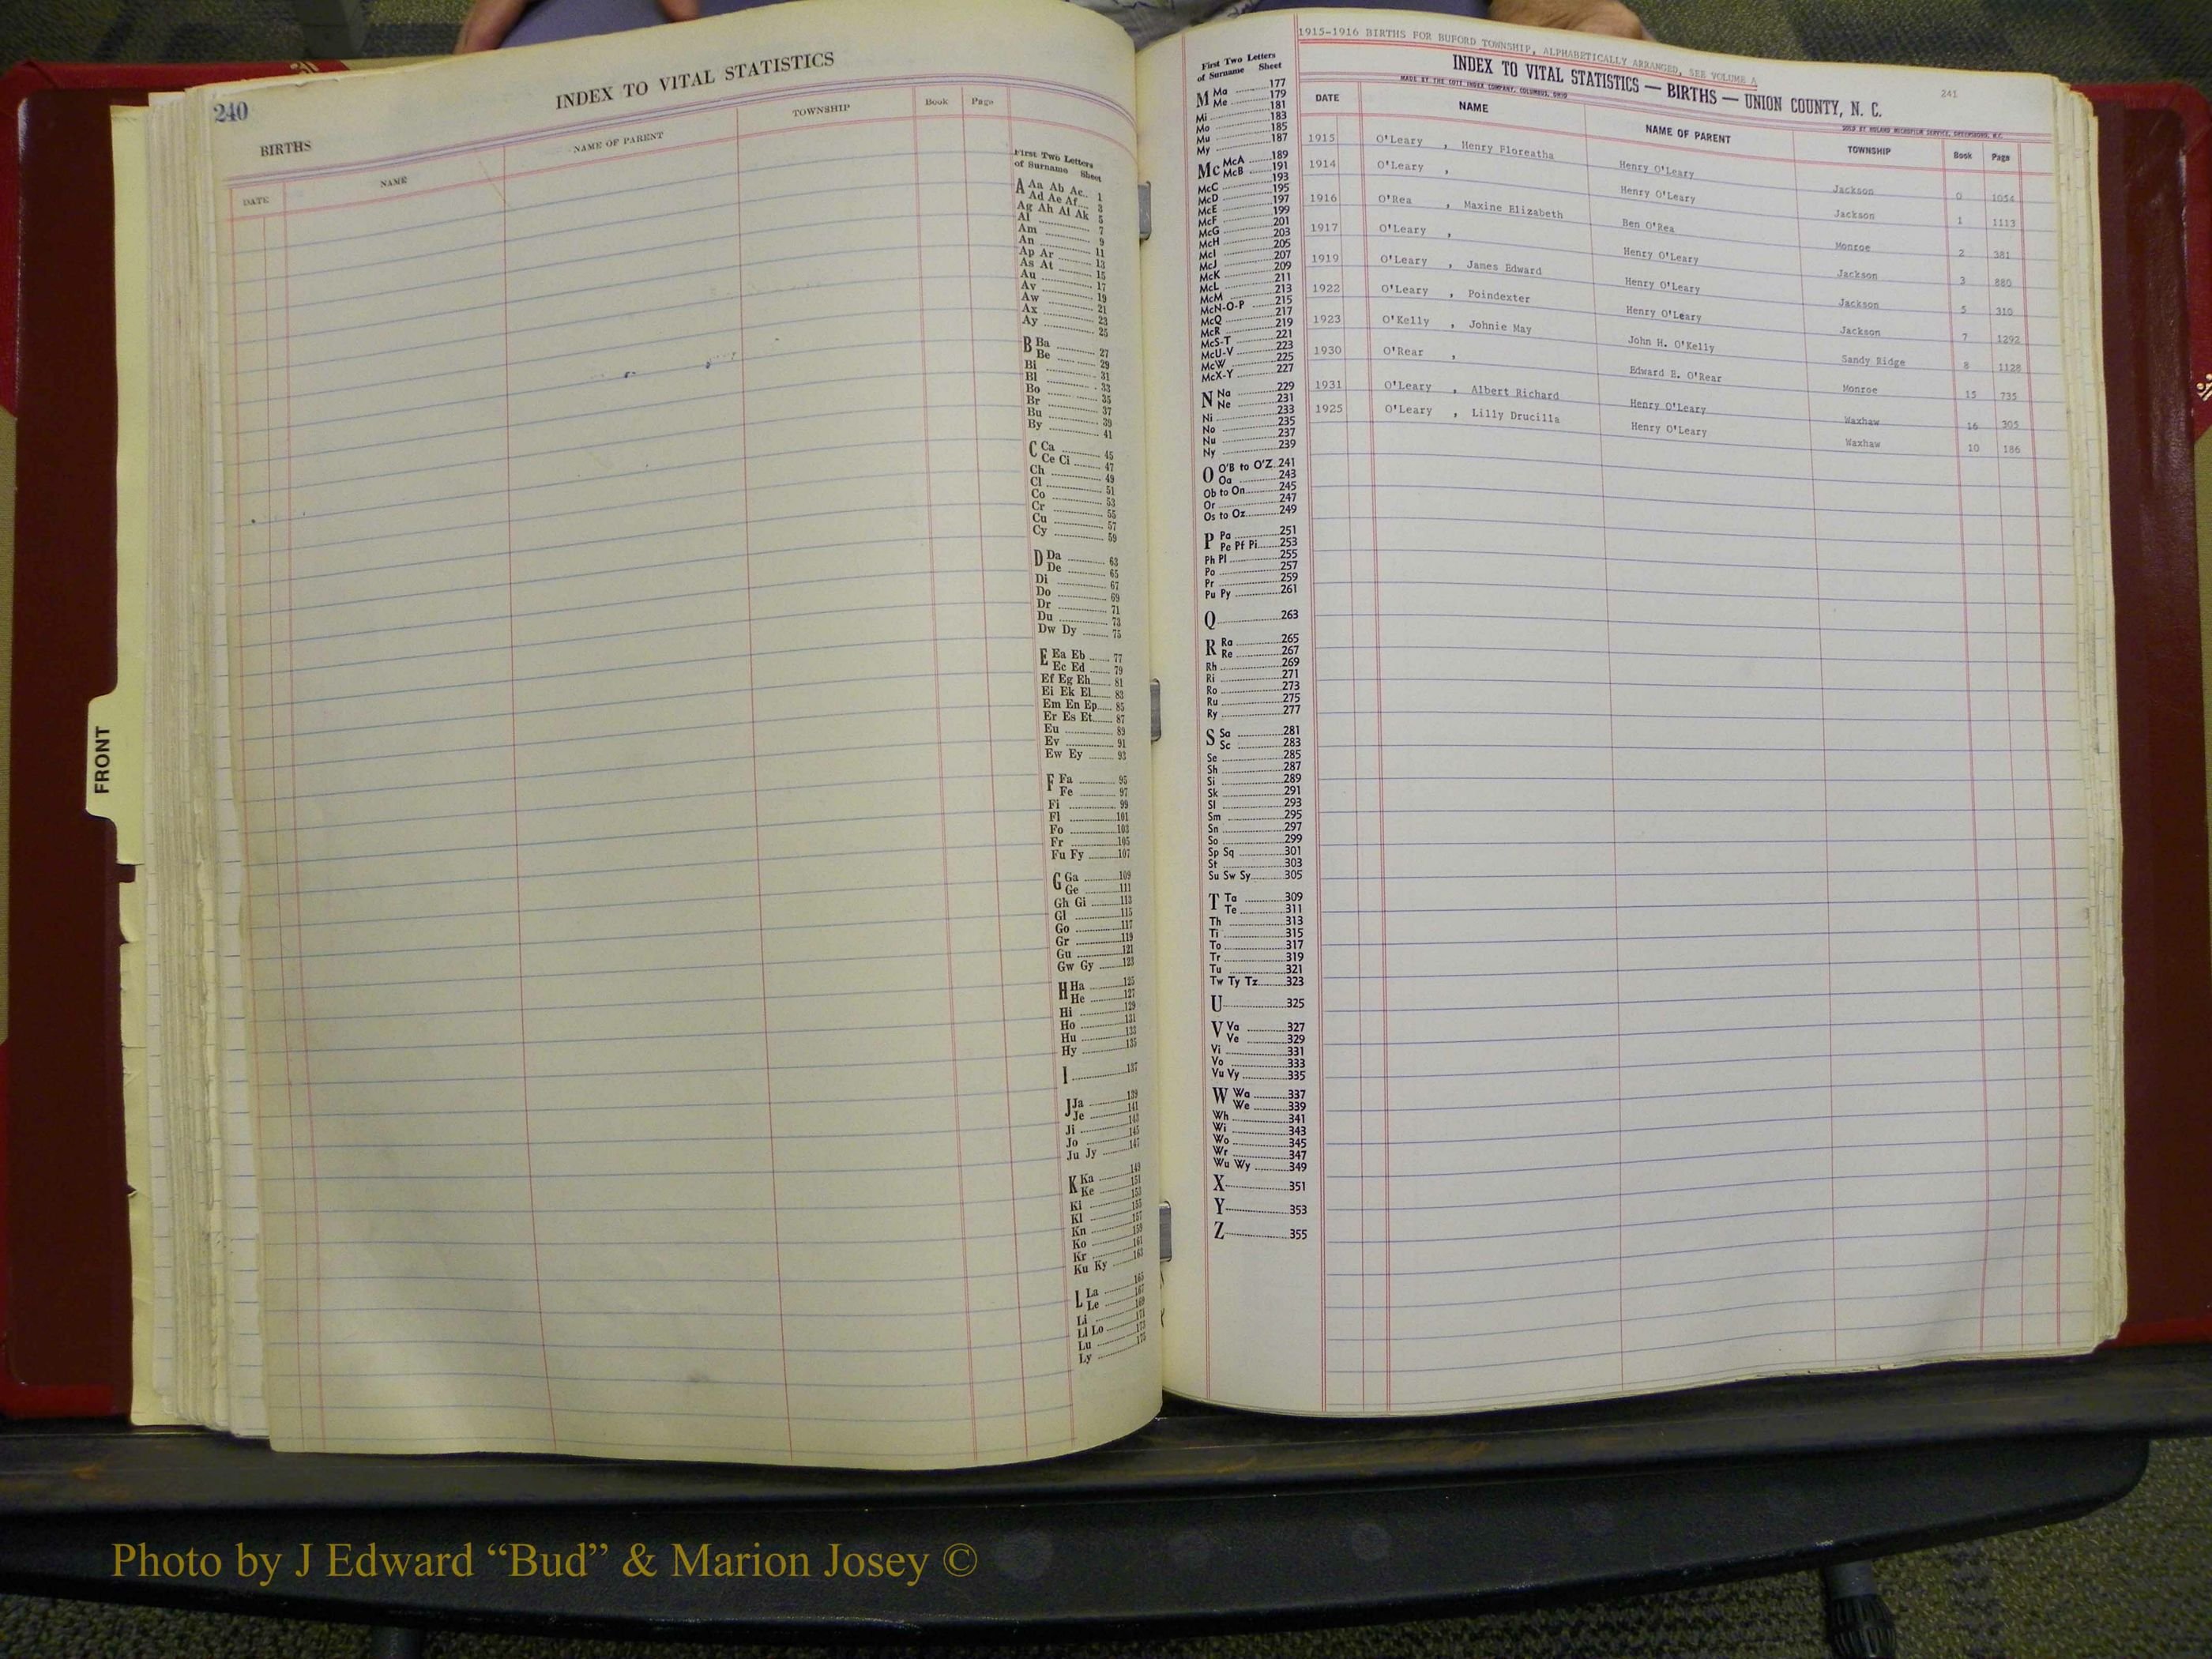 240
INDEX TO VITAL STATISTICS
BIRTHS
DATE NAME NAME OF PARENT TOWNSHIP Book Page
First Two Letters
of Surname Sheet
A Aa Ab Ac 1
Ad Ae Af 3
Ag Ah Ai Ak 5
Al 7
Am 9
An 11
Ap Ar 13
As At 15
Au 17
Av 19
Aw 21
Ax 23
Ay 25
B Ba 27
Be 29
Bi 31
Bl 33
Bo 35
Br 37
Bu 39
By 41
C Ca 45
Ce Ci 47
Ch 49
Cl 51
Co 53
Cr 55
Cu 57
Cy 59
D Da 63
De 65
Di 67
Do 69
Dr 71
Du 73
Dw Dy 75
E Ea Eb 77
Ec Ed 79
Ef Eg Eh 81
Ei Ek El 83
Em En Ep 85
Er Es Et 87
Eu 89
Ev 91
Ew Ey 93
F Fa 95
Fe 97
Fi 99
Fl 101
Fo 103
Fr 105
Fu Fy 107
G Ga 109
Ge 111
Gh Gi 113
Gl 115
Go 117
Gr 119
Gu 121
Gw Gy 123
H Ha 125
He 127
Hi 129
Ho 131
Hu 133
Hy 135
I 137
J Ja 139
Je 141
Ji 143
Jo 145
Ju Jy 147
K Ka 149
Ke 151
Ki 153
Kl 155
Kn 157
Ko 159
Kr 161
Ku Ky 163
L La 165
Le 167
Li 169
Ll Lo 171
Lu 173
Ly 175
FRONT
1915-1916 BIRTHS FOR BUFORD TOWNSHIP, ALPHABETICALLY ARRANGED, SEE VOLUME A
INDEX TO VITAL STATISTICS — BIRTHS — UNION COUNTY, N. C.
241
MADE BY THE COTT INDEX COMPANY, COLUMBUS, OHIO
SOLD BY ROLAND MICROFILM SERVICE, GREENSBORO, N.C.
First Two Letters
of Surname Sheet
M Ma 177
Me 179
Mi 181
Mo 183
Mu 185
My 187
Mc McA 189
McB 191
McC 193
McD 195
McE 197
McF 199
McG 201
McH 203
McI 205
McJ 207
McK 209
McL 211
McM 213
McN-O-P 215
McQ 217
McR 219
McS-T 221
McU-V 223
McW 225
McX-Y 227
N Na 229
Ne 231
Ni 233
No 235
Nu 237
Ny 239
O O'B to O'Z 241
Oa 243
Ob to On 245
Or 247
Os to Oz 249
P Pa 251
Pe Pf Pi 253
Ph Pl 255
Po 257
Pr 259
Pu Py 261
Q 263
R Ra 265
Re 267
Rh 269
Ri 271
Ro 273
Ru 275
Ry 277
S Sa 281
Sc 283
Se 285
Sh 287
Si 289
Sk 291
Sl 293
Sm 295
Sn 297
So 299
Sp Sq 301
St 303
Su Sw Sy 305
T Ta 309
Te 311
Th 313
Ti 315
To 317
Tr 319
Tu 321
Tw Ty Tz 323
U 325
V Va 327
Ve 329
Vi 331
Vo 333
Vu Vy 335
W Wa 337
We 339
Wh 341
Wi 343
Wo 345
Wr 347
Wu Wy 349
X 351
Y 353
Z 355
DATE NAME NAME OF PARENT TOWNSHIP Book Page
1915 O'Leary , Henry Floreatha Henry O'Leary Jackson 0 1054
1914 O'Leary , Henry O'Leary Jackson 1 1113
1916 O'Rea , Maxine Elizabeth Ben O'Rea Monroe 2 381
1917 O'Leary , Henry O'Leary Jackson 3 880
1919 O'Leary , James Edward Henry O'Leary Jackson 5 310
1922 O'Leary , Poindexter Henry O'Leary Jackson 7 1292
1923 O'Kelly , Johnie May John H. O'Kelly Sandy Ridge 8 1128
1930 O'Rear , Edward E. O'Rear Monroe 15 735
1931 O'Leary , Albert Richard Henry O'Leary Waxhaw 16 305
1925 O'Leary , Lilly Drucilla Henry O'Leary Waxhaw 10 186
Photo by J Edward “Bud” & Marion Josey ©